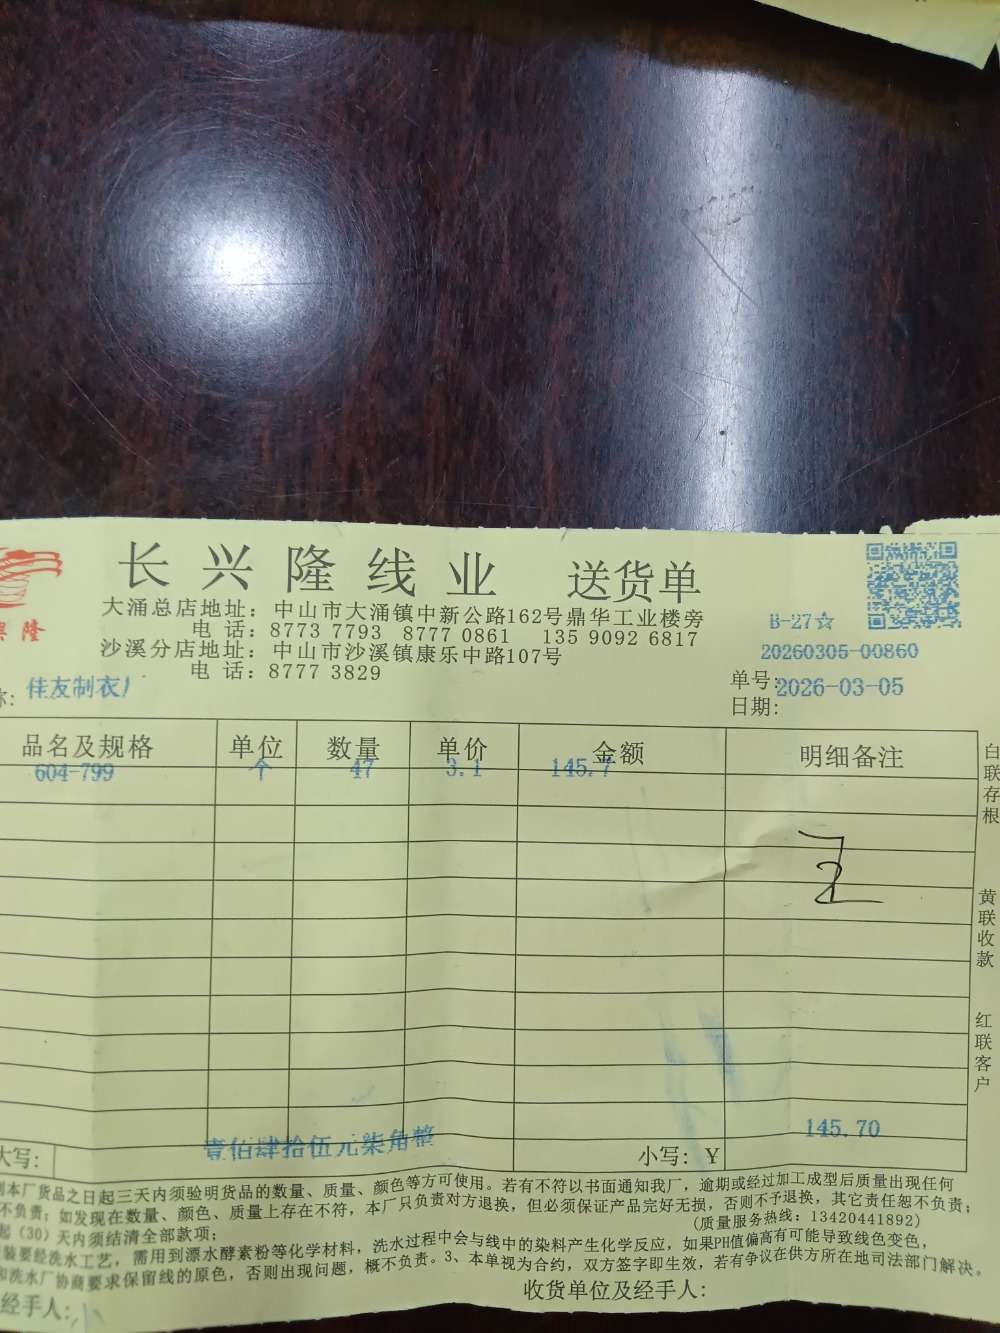 长兴隆线业 送货单
兴隆
大涌总店地址：中山市大涌镇中新公路162号鼎华工业楼旁
电 话：8773 7793 8777 0861 135 9092 6817
沙溪分店地址：中山市沙溪镇康乐中路107号
电 话：8777 3829
B-27☆
20260305-00860
单号：
2026-03-05
日期：
称：佳友制衣厂
品名及规格 单位 数量 单价 金额 明细备注
604-799 个 47 3.1 145.7
白联存根
黄联收款
红联客户
145.70
大写： 壹佰肆拾伍元柒角整 小写：Y
到本厂货品之日起三天内须验明货品的数量、质量、颜色等方可使用。若有不符以书面通知我厂，逾期或经过加工成型后质量出现任何
不负责；如发现在数量、颜色、质量上存在不符，本厂只负责对方退换，但必须保证产品完好无损，否则不予退换，其它责任恕不负责；
起（30）天内须结清全部款项；
（质量服务热线：13420441892）
装要经洗水工艺，需用到漂水酵素粉等化学材料，洗水过程中会与线中的染料产生化学反应，如果PH值偏高有可能导致线色变色，
和洗水厂协商要求保留线的原色，否则出现问题，概不负责。3、本单视为合约，双方签字即生效，若有争议在供方所在地司法部门解决。
经手人： 收货单位及经手人：